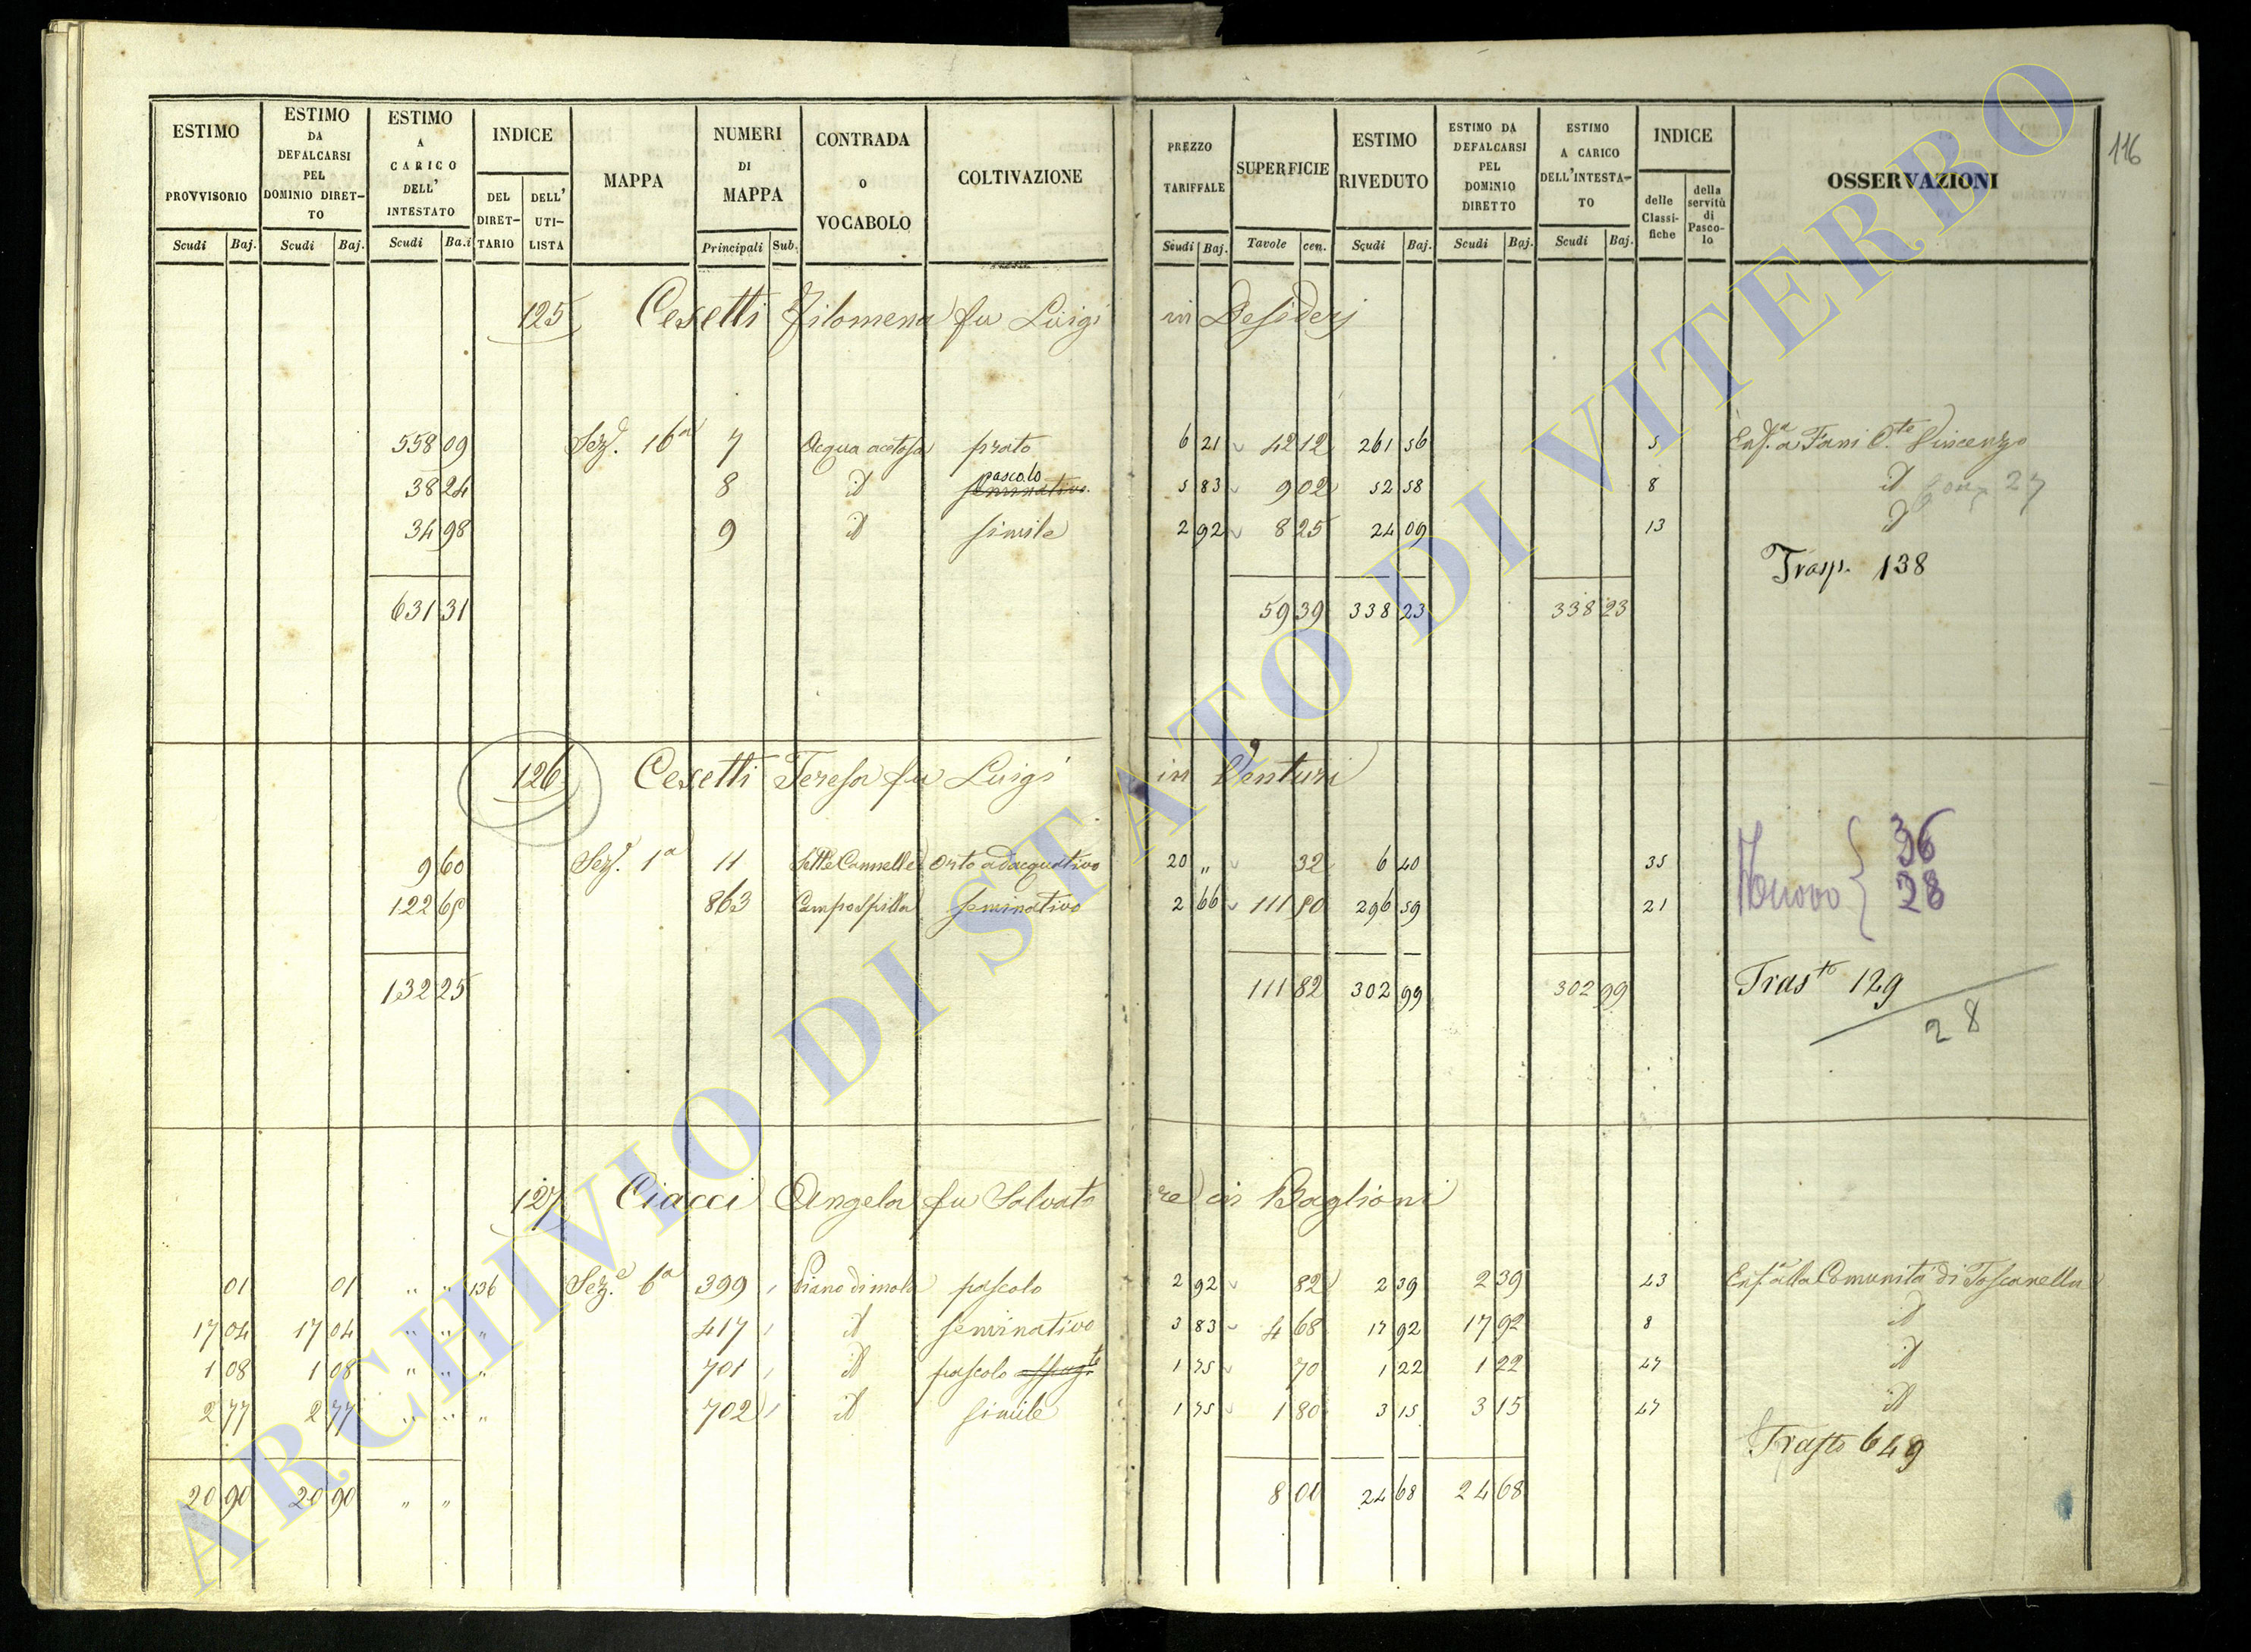 116
ESTIMO PROVVISORIO Scudi Baj. ESTIMO DA DEFALCARSI PEL DOMINIO DIRETTO Scudi Baj. ESTIMO A CARICO DELL' INTESTATO Scudi Ba.i INDICE DEL DIRETTARIO DELL' UTILISTA MAPPA NUMERI DI MAPPA Principali Sub. CONTRADA O VOCABOLO COLTIVAZIONE PREZZO TARIFFALE Scudi Baj. SUPERFICIE Tavole cen. ESTIMO RIVEDUTO Scudi Baj. ESTIMO DA DEFALCARSI PEL DOMINIO DIRETTO Scudi Baj. ESTIMO A CARICO DELL'INTESTATO Scudi Baj. INDICE delle Classifiche della servitù di Pascolo OSSERVAZIONI
125 Cesetti Filomena fu Luigi in Desiderj
558 09 Sez.e 16a 7 Acqua acetosa prato 6 21 42 12 261 56 5 Enf.a a Fani C.te Vincenzo
38 24 8 id pascolo seminativo 5 83 9 02 52 58 8 id 27
34 98 9 id simile 2 92 8 25 24 09 13 id
Trasp. 138
631 31 59 39 338 23 338 23
126 Cesetti Teresa fu Luigi in Venturi
9 60 Sez.e 1a 11 Sette Cannelle Orto adacquativo 20 " 32 6 40 35 Nuovo 36
122 65 863 Campospilla seminativo 2 66 111 50 296 59 21 28
132 25 111 82 302 99 302 99 Trasto 129
28
127 Ciacci Angela fu Salvatore in Baglioni
01 01 " " 136 Sez.e 6a 399 Piano di mola pascolo 2 92 82 2 39 2 39 23 Enf.a alla Comunità di Toscanella
17 04 17 04 " " " 417 id seminativo 3 83 4 68 17 92 17 92 8 id
1 08 1 08 " " " 701 id pascolo 1 75 70 1 22 1 22 27 id
2 77 2 77 " " " 702 id simile 1 75 1 80 3 15 3 15 27 id
Trasto 649
20 90 20 90 " " 8 00 24 68 24 68
ARCHIVIO DI STATO DI VITERBO